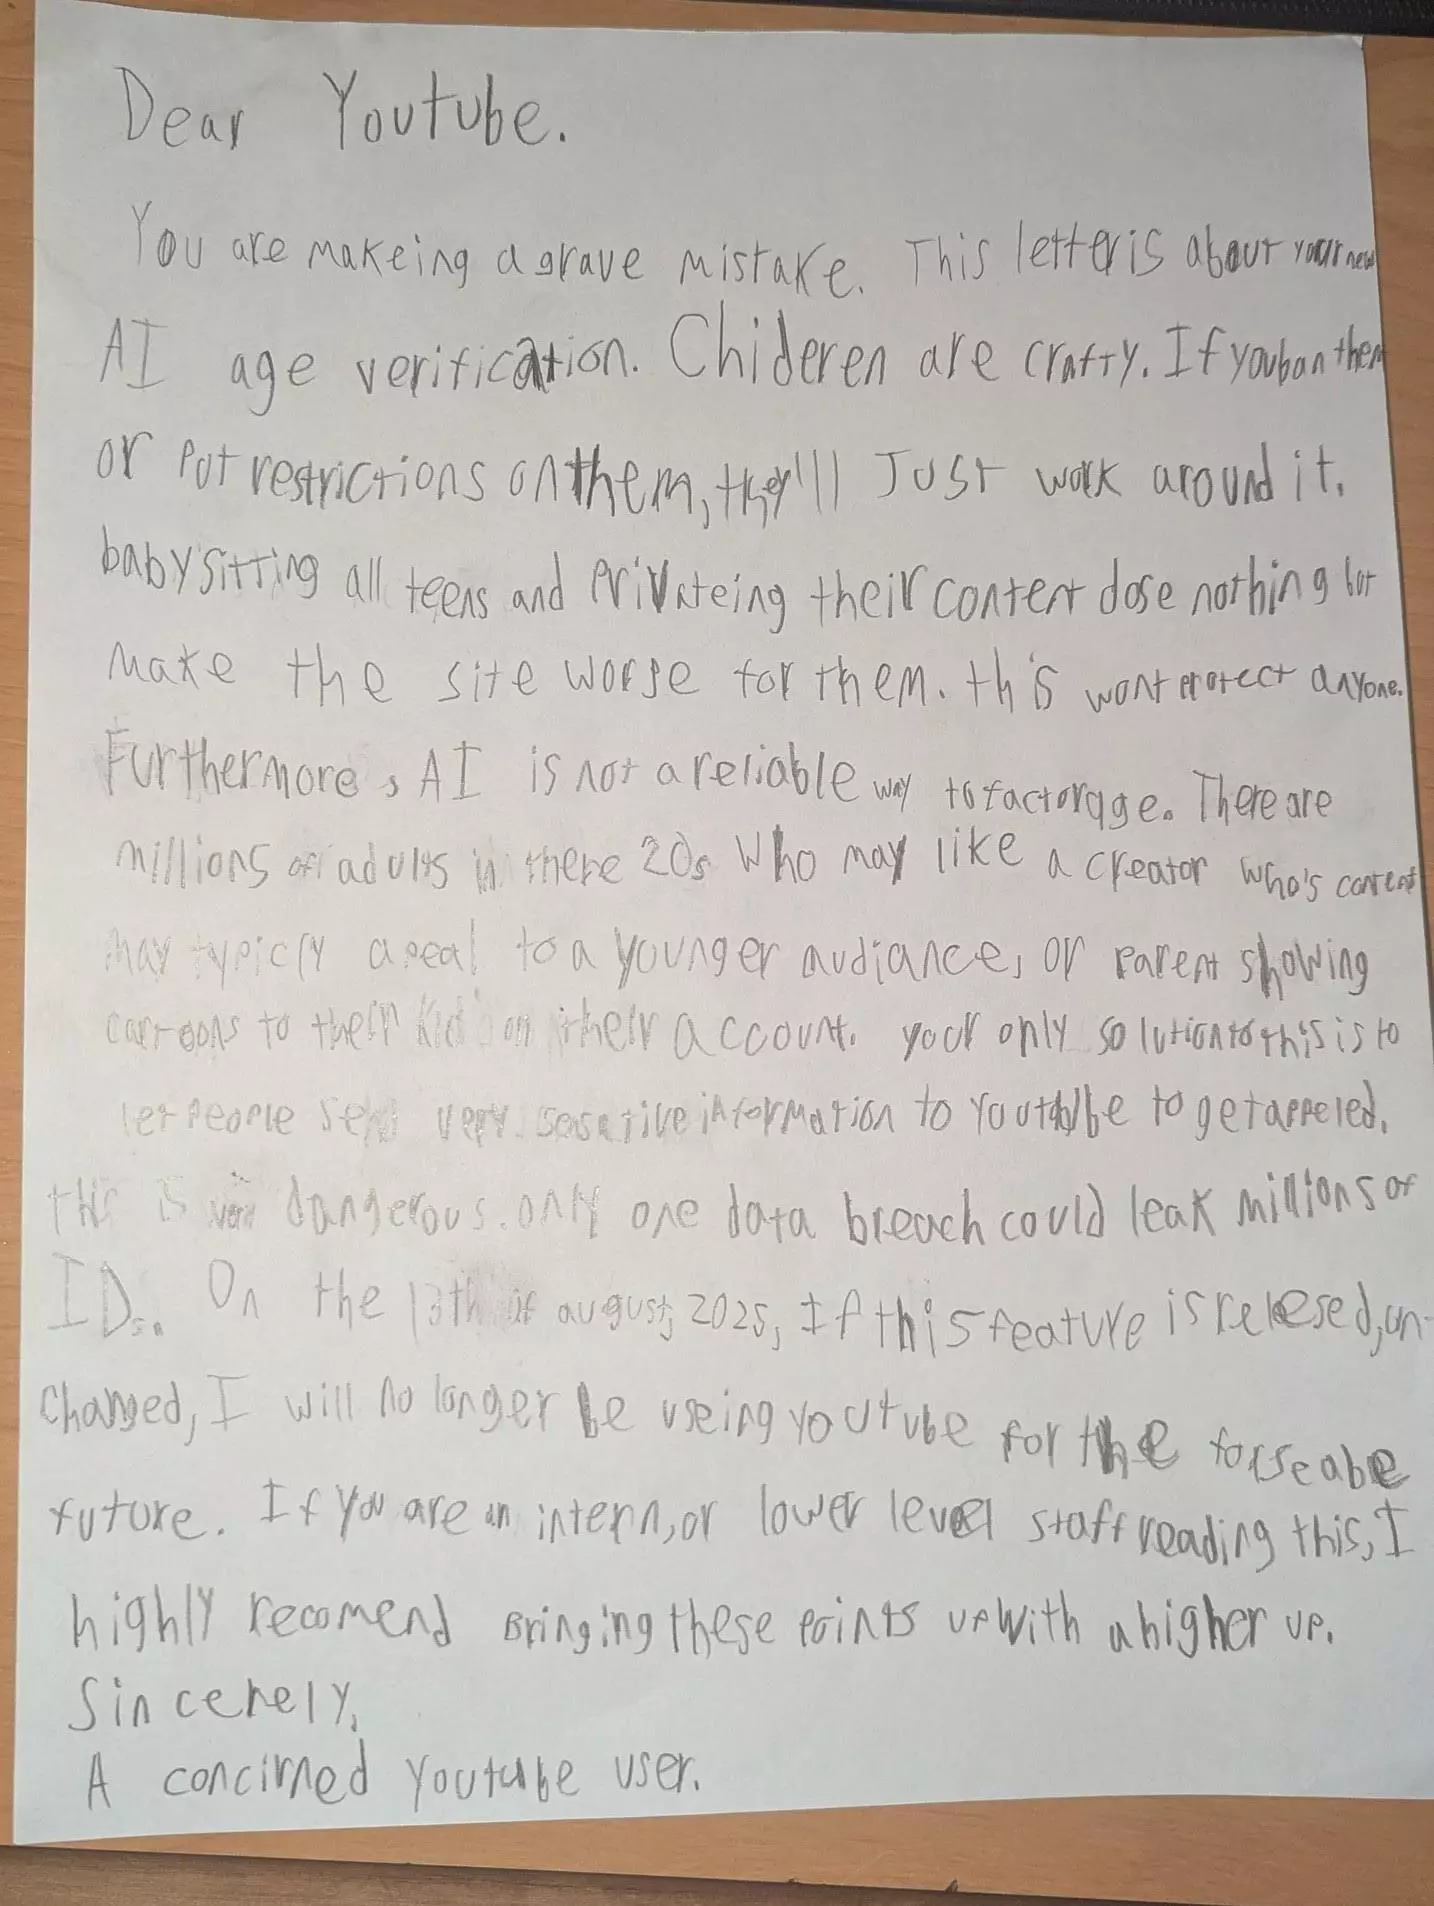 Dear Youtube.
You are makeing a grave mistake. This letter is about your new
AI age verification. Chideren are crafty. If you ban them
or put restrictions on them, they'll Just work around it.
babysitting all teens and Privateing their content dose nothing but
make the site worse for them. this wont protect anyone.
Furthermore, AI is not a reliable way to factor age. There are
millions of adults in there 20s who may like a creator who's content
may typicly apeal to a younger audiance, or parent showing
cartoons to their kid on their account. your only solution to this is to
let people send very sensative information to Youtube to get appeled.
this is very dangerous. only one data breach could leak millions of
IDs. On the 13th of august, 2025, If this feature is relesed, un-
changed, I will no longer be useing youtube for the forseable
future. If you are an intern, or lower level staff reading this, I
highly recomend Bringing these points up with a higher up.
Sincerely,
A concirned youtube user.